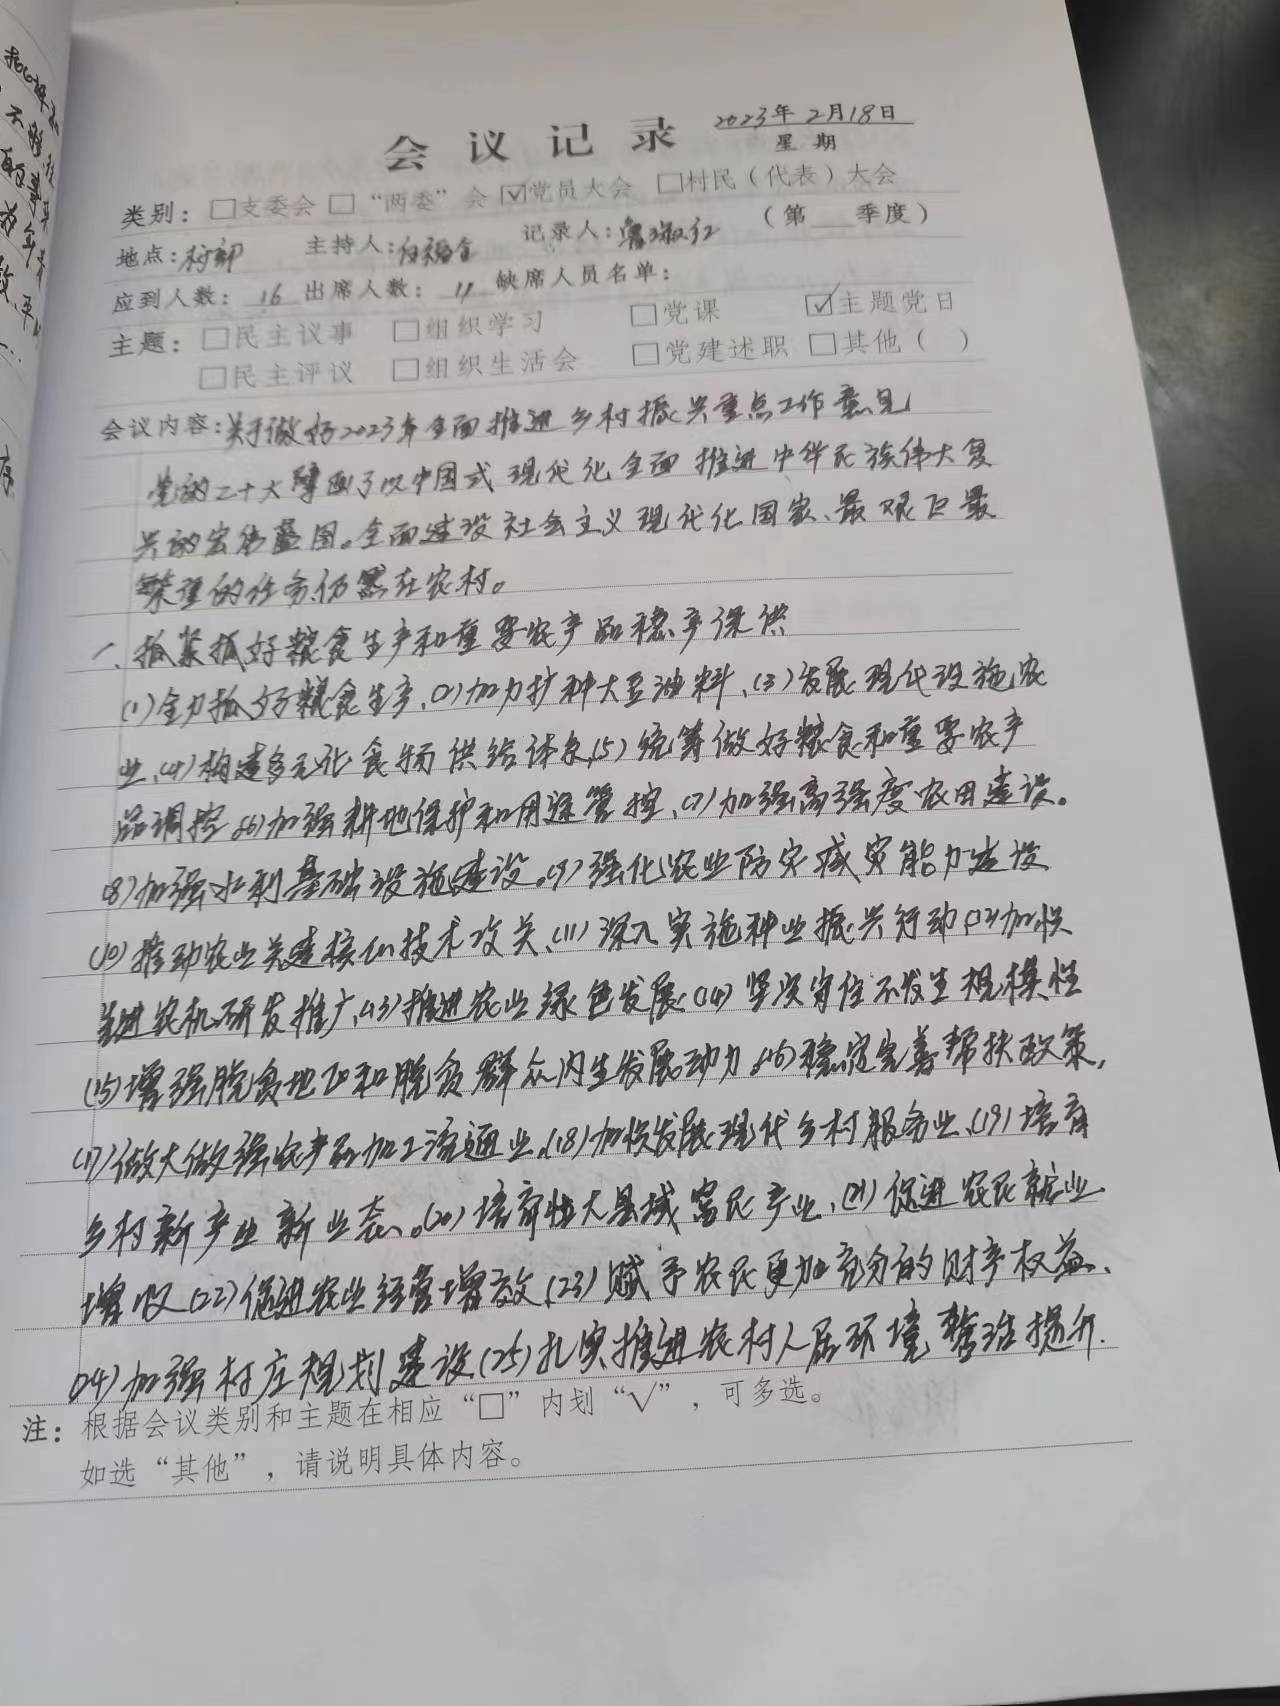 会议记录 2023年2月18日
星期
类别：□支委会 □“两委”会 ☑党员大会 □村民（代表）大会
地点：村部 主持人：白福全 记录人： （第 季度）
应到人数：16 出席人数：11 缺席人员名单：
主题：□民主议事 □组织学习 □党课 ☑主题党日
□民主评议 □组织生活会 □党建述职 □其他（ ）
会议内容：关于做好2023年全面推进乡村振兴重点工作意见
党的二十大擘画了以中国式现代化全面推进中华民族伟大复
兴的宏伟蓝图。全面建设社会主义现代化国家、最艰巨最
繁重的任务仍然在农村。
一、抓紧抓好粮食生产和重要农产品稳产保供
(1)全力抓好粮食生产、(2)加力扩种大豆油料、(3)发展现代设施农
业、(4)构建多元化食物供给体系(5)统筹做好粮食和重要农产
品调控(6)加强耕地保护和用途管控、(7)加强高强度农田建设。
(8)加强水利基础设施建设。(9)强化农业防灾减灾能力建设
(10)推动农业关键核心技术攻关、(11)深入实施种业振兴行动(12)加快
先进农机研发推广、(13)推进农业绿色发展(14)坚决守住不发生规模性
(15)增强脱贫地区和脱贫群众内生发展动力。(16)稳定完善帮扶政策，
(17)做大做强农产品加工流通业、(18)加快发展现代乡村服务业、(19)培育
乡村新产业新业态。(20)培育壮大县域富民产业、(21)促进农民就业
增收(22)促进农业经营增效、(23)赋予农民更加充分的财产权益、
(24)加强村庄规划建设、(25)扎实推进农村人居环境整治提升.
注：根据会议类别和主题在相应“□”内划“√”，可多选。
如选“其他”，请说明具体内容。